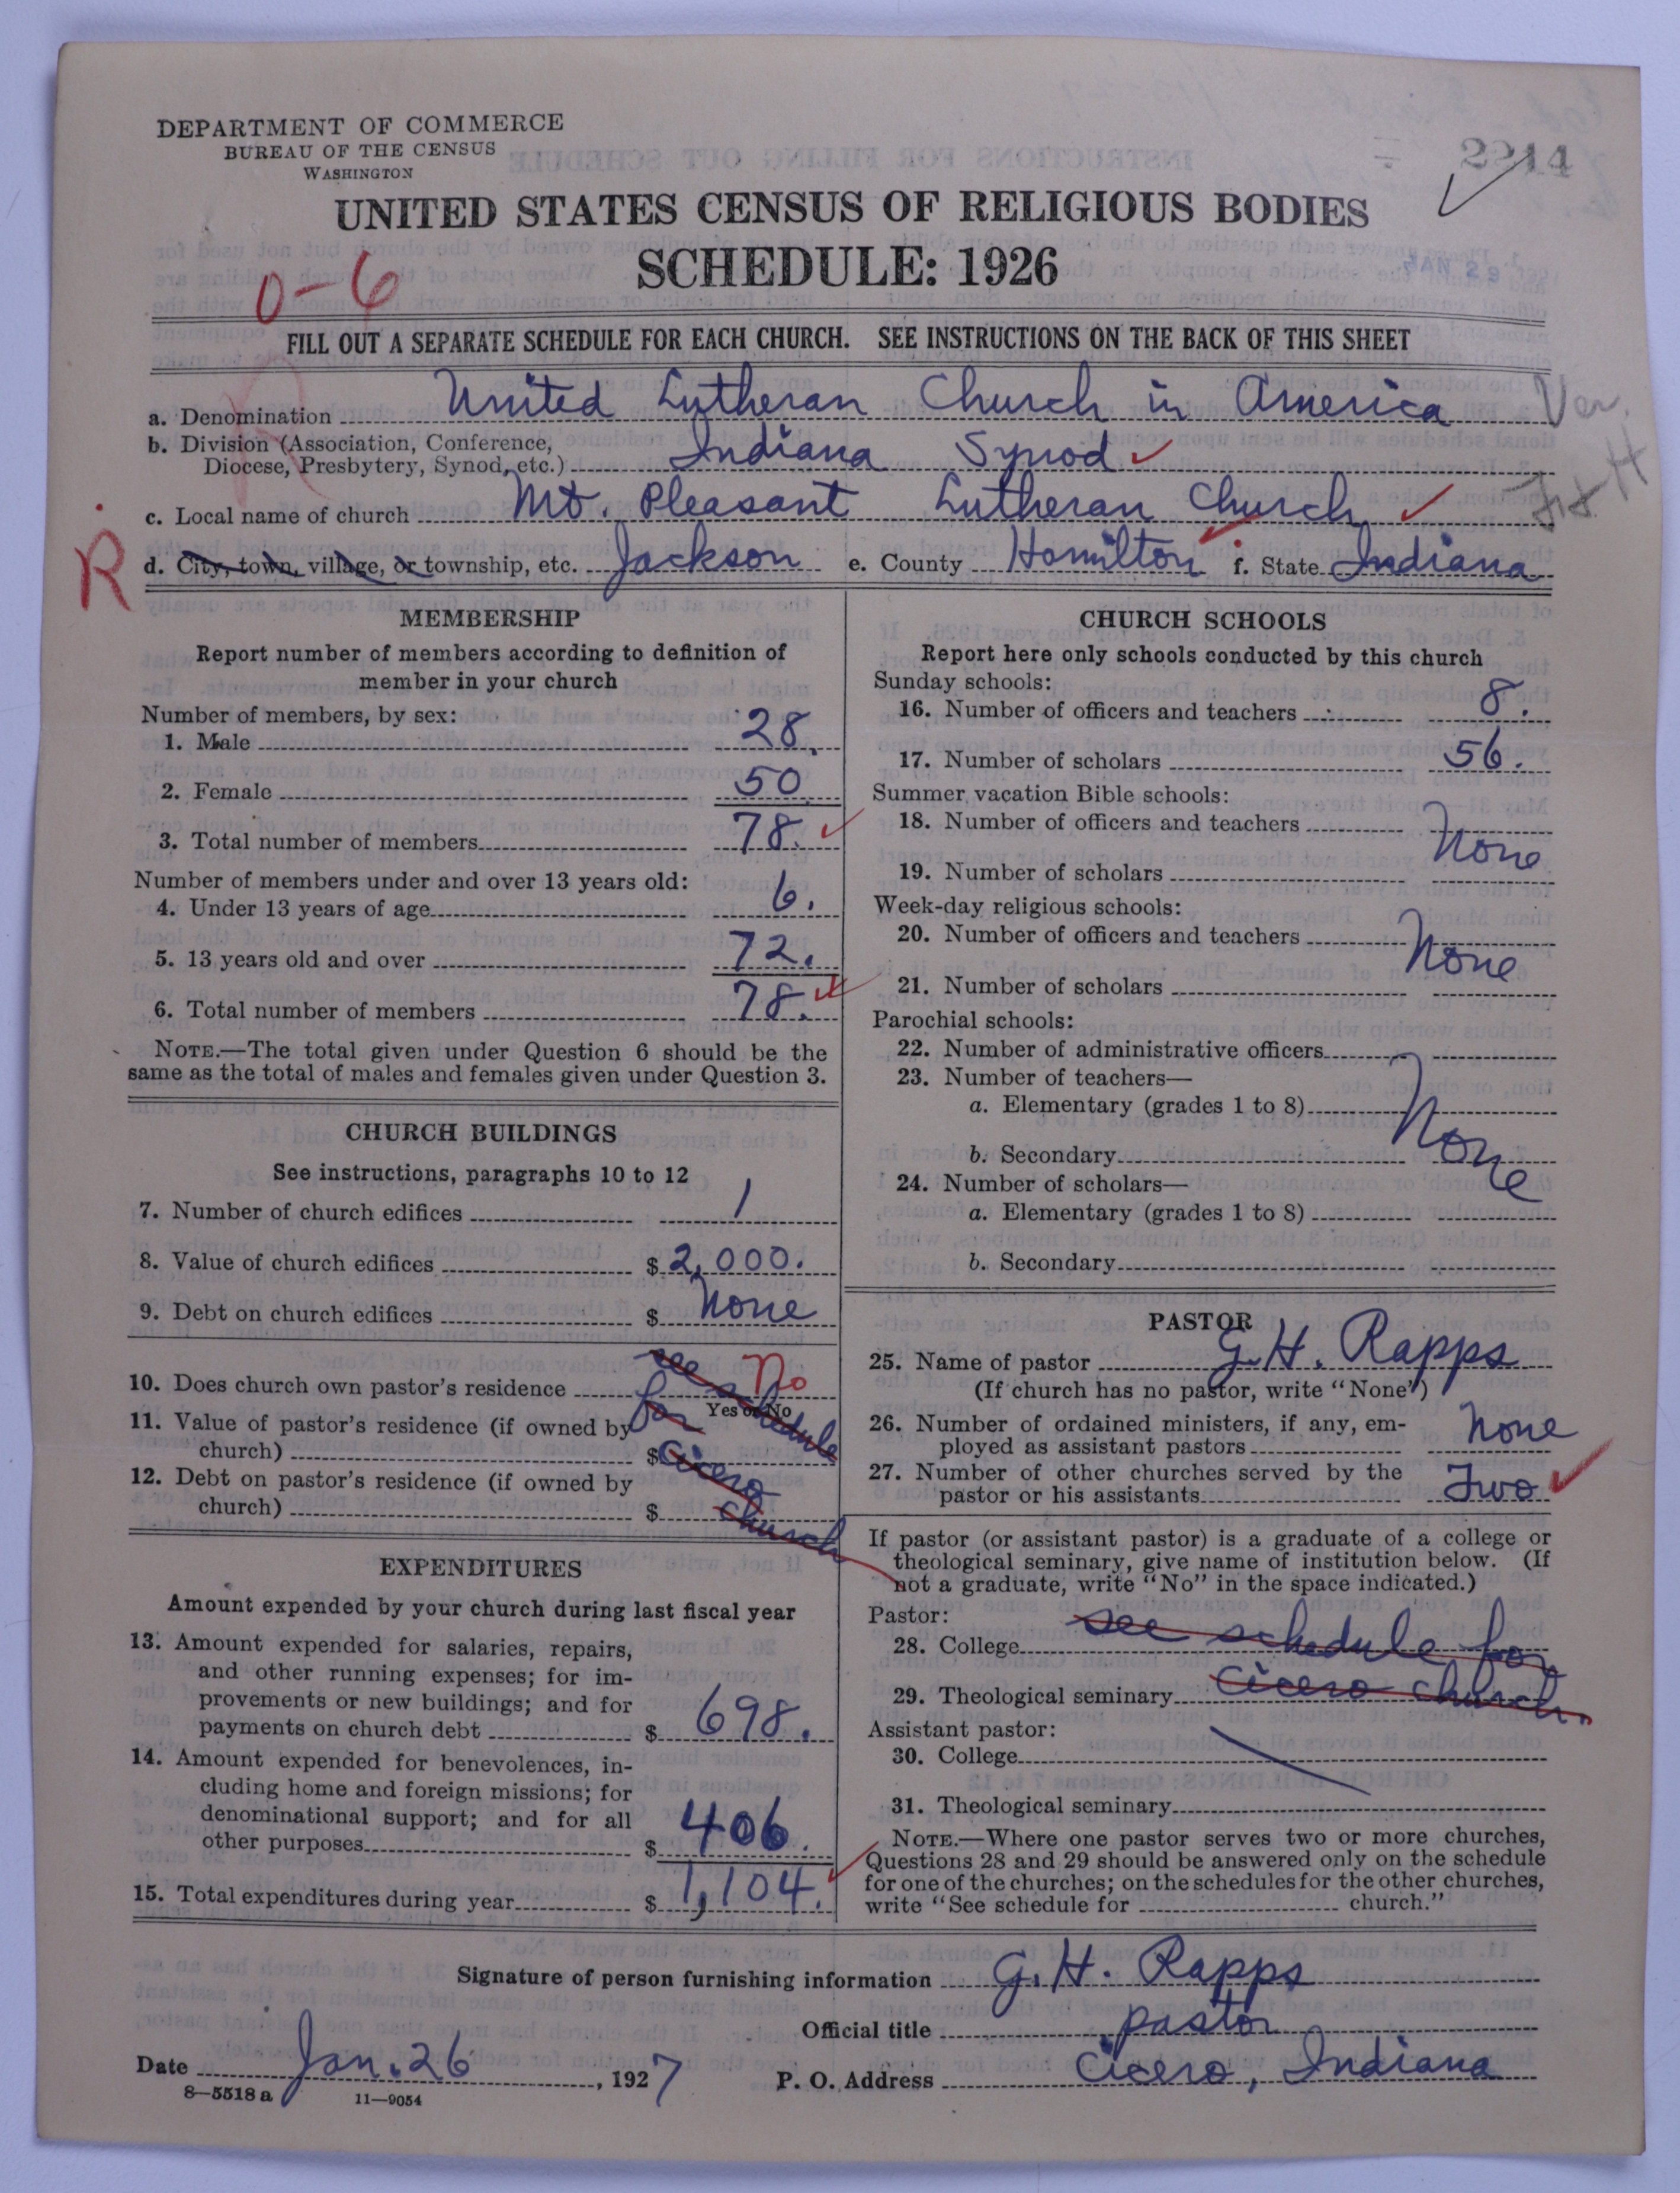 DEPARTMENT OF COMMERCE
BUREAU OF THE CENSUS
WASHINGTON
2214
UNITED STATES CENSUS OF RELIGIOUS BODIES
SCHEDULE: 1926
JAN 29
0-6
FILL OUT A SEPARATE SCHEDULE FOR EACH CHURCH. SEE INSTRUCTIONS ON THE BACK OF THIS SHEET
a. Denomination United Lutheran Church in America Ver.
b. Division (Association, Conference,
Diocese, Presbytery, Synod, etc.) Indiana Synod
c. Local name of church Mt. Pleasant Lutheran Church
R
d. City, town, village, or township, etc. Jackson e. County Hamilton f. State Indiana
MEMBERSHIP
Report number of members according to definition of
member in your church
Number of members, by sex:
1. Male 28.
2. Female 50
3. Total number of members 78.
Number of members under and over 13 years old:
4. Under 13 years of age 6.
5. 13 years old and over 72.
6. Total number of members 78.
NOTE.—The total given under Question 6 should be the
same as the total of males and females given under Question 3.
CHURCH BUILDINGS
See instructions, paragraphs 10 to 12
7. Number of church edifices 1
8. Value of church edifices $ 2,000.
9. Debt on church edifices $ None
10. Does church own pastor's residence see schedule No
Yes or No
11. Value of pastor's residence (if owned by for
church) $ Cicero
12. Debt on pastor's residence (if owned by
church) $ church
EXPENDITURES
Amount expended by your church during last fiscal year
13. Amount expended for salaries, repairs,
and other running expenses; for im-
provements or new buildings; and for
payments on church debt $ 698.
14. Amount expended for benevolences, in-
cluding home and foreign missions; for
denominational support; and for all
other purposes $ 406.
15. Total expenditures during year $ 1,104.
CHURCH SCHOOLS
Report here only schools conducted by this church
Sunday schools:
16. Number of officers and teachers 8.
17. Number of scholars 56.
Summer vacation Bible schools:
18. Number of officers and teachers
None
19. Number of scholars
Week-day religious schools:
20. Number of officers and teachers
None
21. Number of scholars
Parochial schools:
22. Number of administrative officers
23. Number of teachers—
a. Elementary (grades 1 to 8)
None
b. Secondary
24. Number of scholars—
a. Elementary (grades 1 to 8)
b. Secondary
PASTOR
25. Name of pastor G. H. Rapps
(If church has no pastor, write "None")
26. Number of ordained ministers, if any, em-
ployed as assistant pastors None
27. Number of other churches served by the
pastor or his assistants Two
If pastor (or assistant pastor) is a graduate of a college or
theological seminary, give name of institution below. (If
not a graduate, write "No" in the space indicated.)
Pastor:
28. College see schedule for
29. Theological seminary Cicero church.
Assistant pastor:
30. College
31. Theological seminary
NOTE.—Where one pastor serves two or more churches,
Questions 28 and 29 should be answered only on the schedule
for one of the churches; on the schedules for the other churches,
write "See schedule for church."
Signature of person furnishing information G. H. Rapps
Official title pastor
Date Jan. 26, 1927 P. O. Address Cicero, Indiana
8—5518 a 11—9054